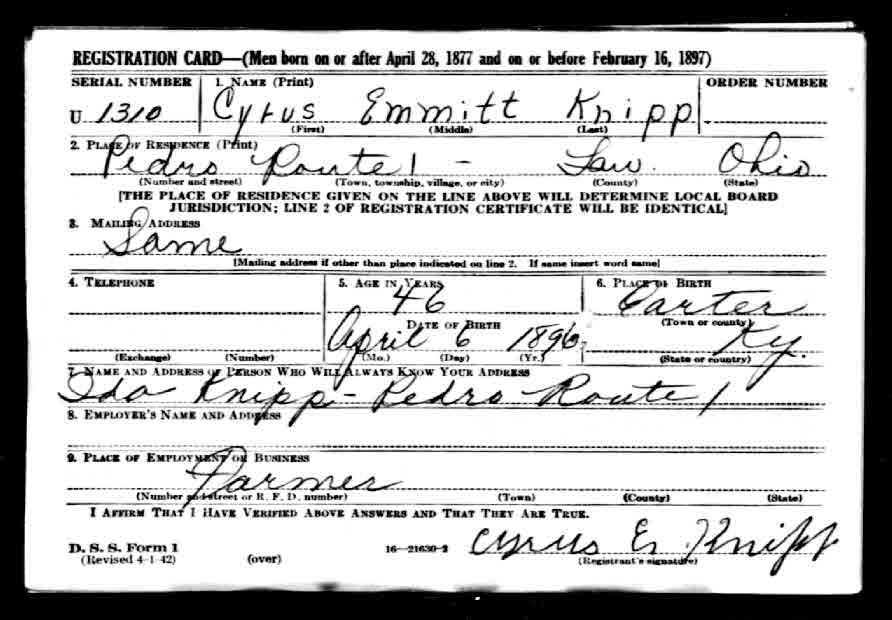 REGISTRATION CARD—(Men born on or after April 28, 1877 and on or before February 16, 1897)
SERIAL NUMBER 1. NAME (Print) ORDER NUMBER
U 1310 Cyrus Emmitt Knipp
(First) (Middle) (Last)
2. PLACE OF RESIDENCE (Print)
Pedro Route 1 - Law. Ohio
(Number and street) (Town, township, village, or city) (County) (State)
[THE PLACE OF RESIDENCE GIVEN ON THE LINE ABOVE WILL DETERMINE LOCAL BOARD
JURISDICTION; LINE 2 OF REGISTRATION CERTIFICATE WILL BE IDENTICAL]
3. MAILING ADDRESS
Same
[Mailing address if other than place indicated on line 2. If same insert word same]
4. TELEPHONE 5. AGE IN YEARS 6. PLACE OF BIRTH
46 Carter
DATE OF BIRTH (Town or county)
April 6 1896 Ky.
(Exchange) (Number) (Mo.) (Day) (Yr.) (State or country)
7. NAME AND ADDRESS OF PERSON WHO WILL ALWAYS KNOW YOUR ADDRESS
Ida Knipp - Pedro Route 1
8. EMPLOYER'S NAME AND ADDRESS
9. PLACE OF EMPLOYMENT OR BUSINESS
Farmer
(Number and street or R. F. D. number) (Town) (County) (State)
I AFFIRM THAT I HAVE VERIFIED ABOVE ANSWERS AND THAT THEY ARE TRUE.
D. S. S. Form 1 16—21630-2 Cyrus E. Knipp
(Revised 4-1-42) (over) (Registrant's signature)